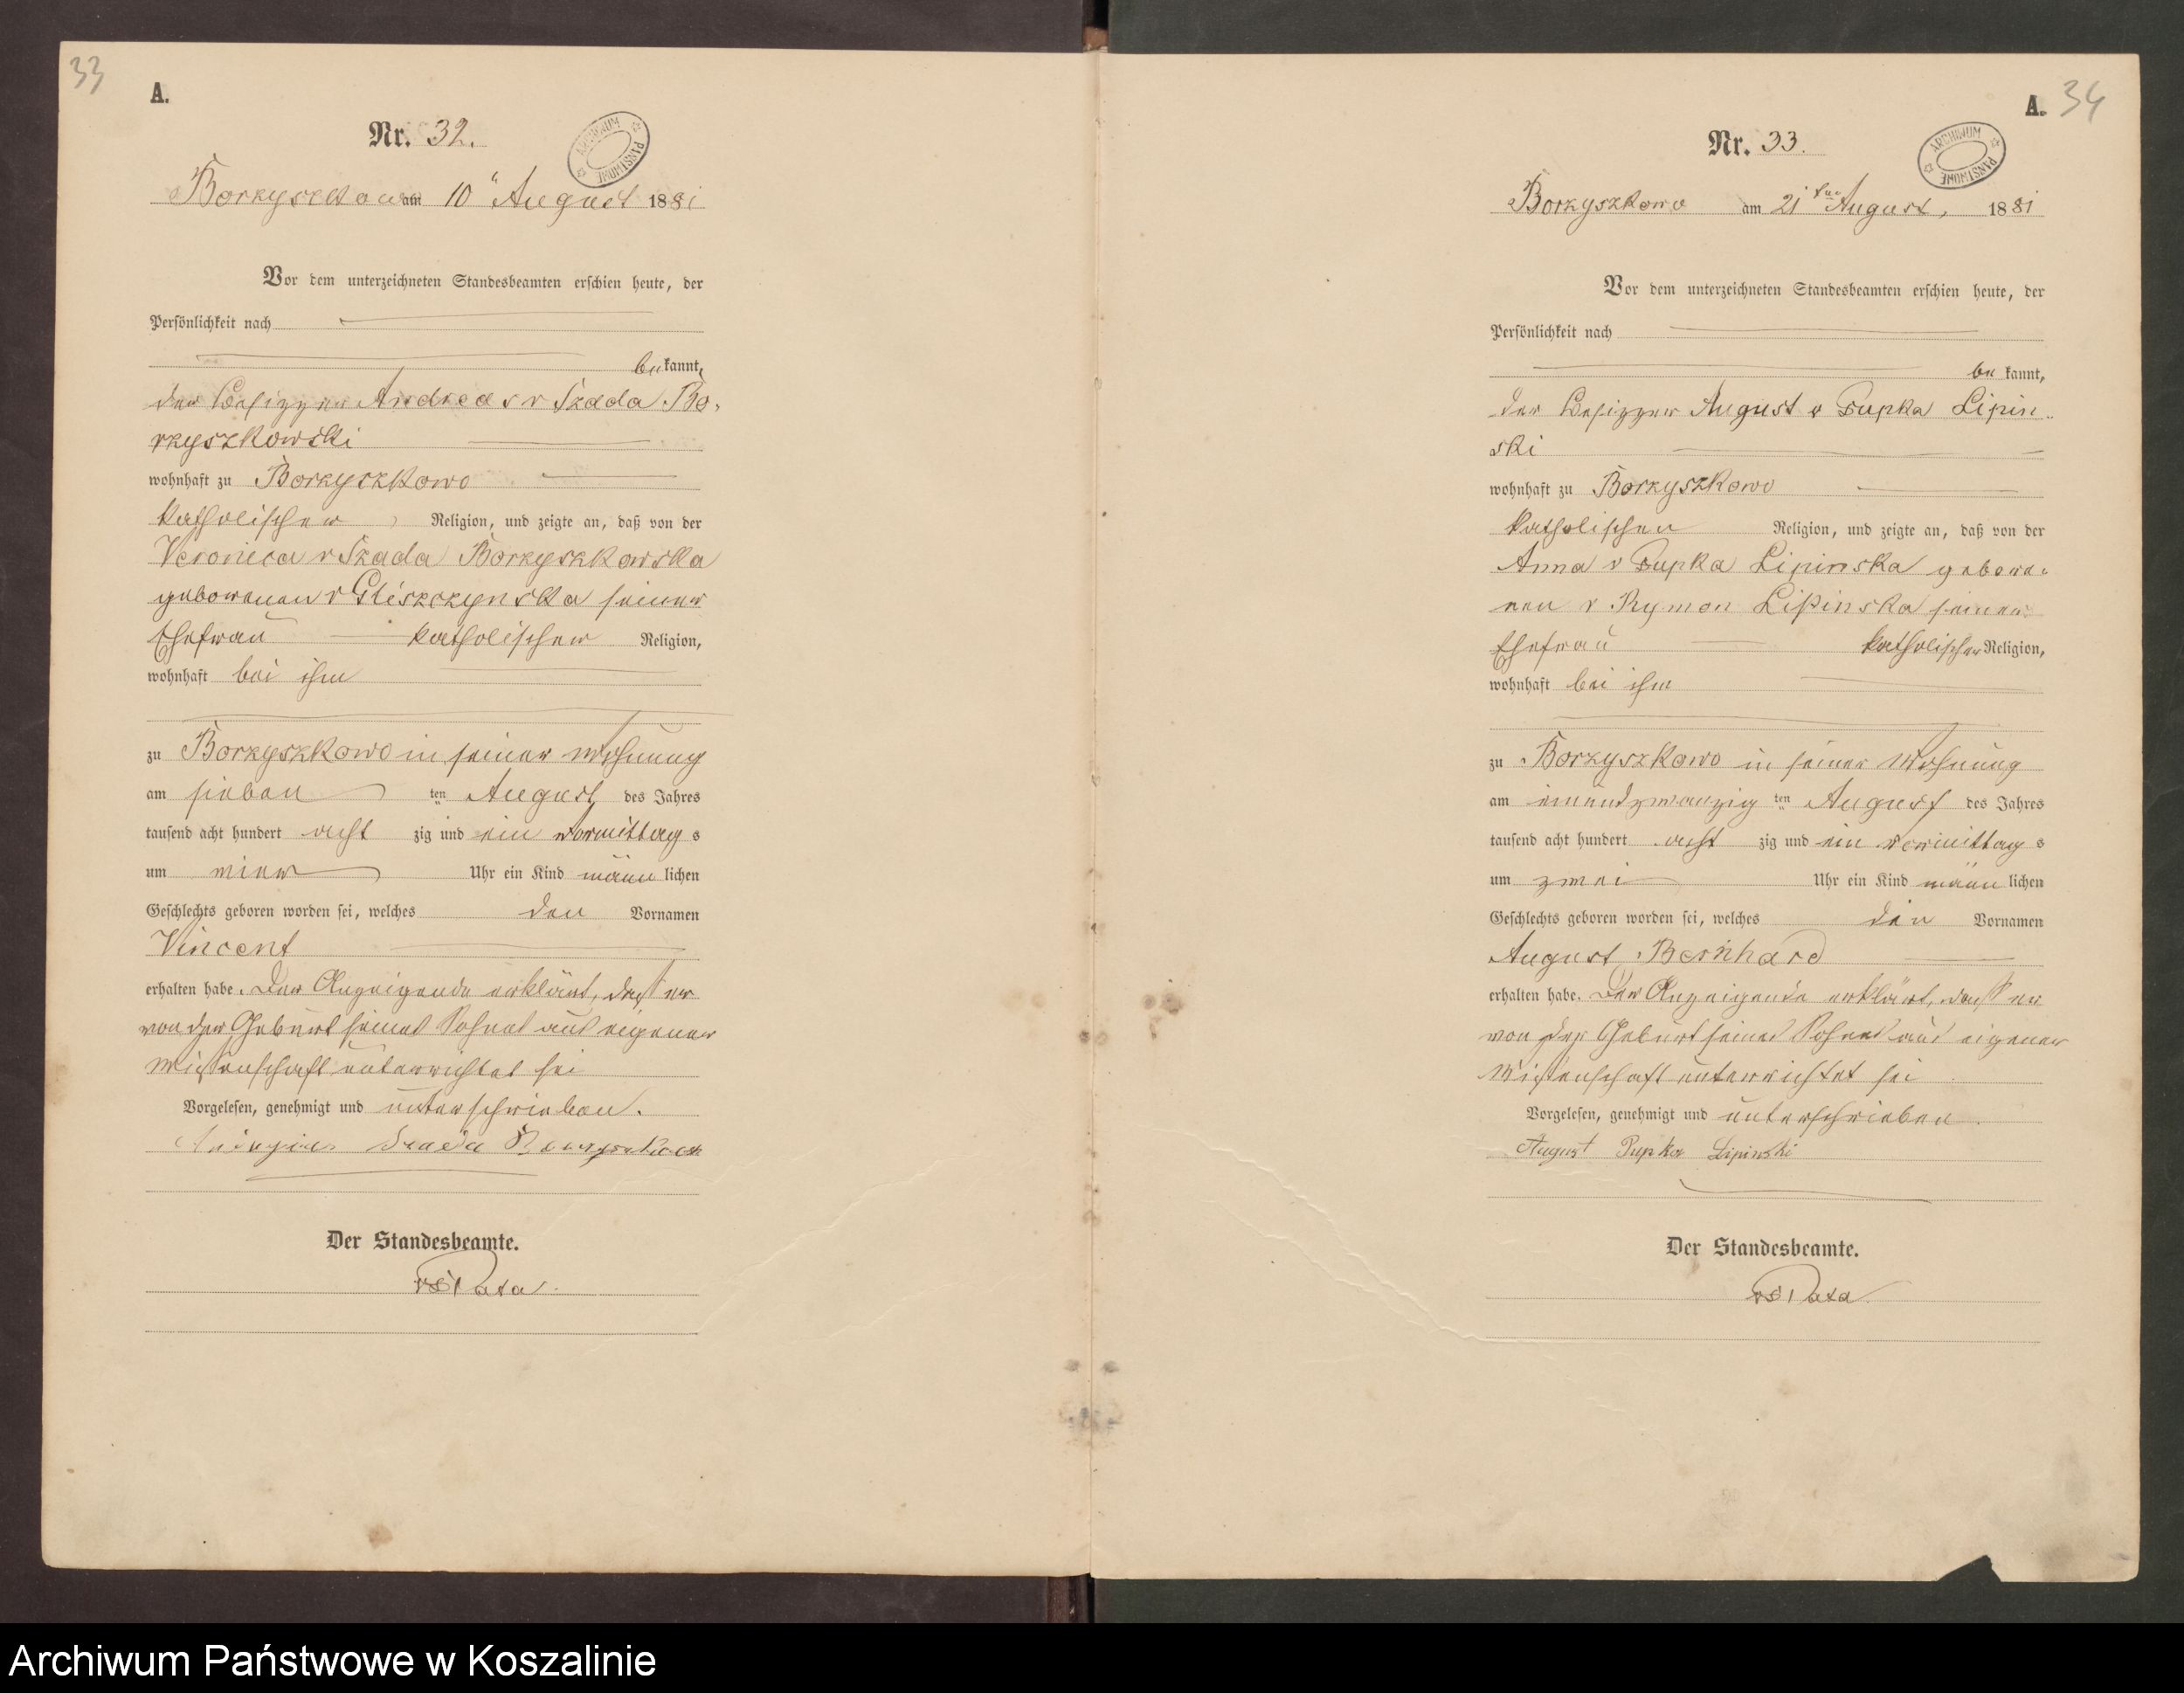 33
A.
Nr. 32.
ARCHIWUM PAŃSTWOWE
Borzyszkowo am 10" August 1881
Vor dem unterzeichneten Standesbeamten erschien heute, der
Persönlichkeit nach
bekannt,
der Besitzer Andreas v Szada Bo-
rzyszkowski
wohnhaft zu Borzyszkowo
katholischer Religion, und zeigte an, daß von der
Veronica v Szada Borzyszkowska
geborenen v Gliszczynska seiner
Ehefrau katholischer Religion,
wohnhaft bei ihm
zu Borzyszkowo in seiner Wohnung
am sieben ten August des Jahres
tausend acht hundert acht zig und ein vormittags
um vier Uhr ein Kind männlichen
Geschlechts geboren worden sei, welches den Vornamen
Vincent
erhalten habe. Der Anzeigende erklärt, daß er
von der Geburt seines Sohnes aus eigener
Wissenschaft unterrichtet sei
Vorgelesen, genehmigt und unterschrieben.
Der Standesbeamte.
A. 34
Nr. 33.
ARCHIWUM PAŃSTWOWE
Borzyszkowo am 21ten August, 1881
Vor dem unterzeichneten Standesbeamten erschien heute, der
Persönlichkeit nach
be kannt,
der Besitzer August v Pupka Lipin-
ski
wohnhaft zu Borzyszkowo
katholischen Religion, und zeigte an, daß von der
Anna v Pupka Lipinska gebore-
nen v Rymon Lipinska seiner
Ehefrau katholischer Religion,
wohnhaft bei ihm
zu Borzyszkowo in seiner Wohnung
am einundzwanzig ten August des Jahres
tausend acht hundert acht zig und ein vormittags
um zwei Uhr ein Kind männlichen
Geschlechts geboren worden sei, welches den Vornamen
August Bernhard
erhalten habe. Der Anzeigende erklärt, daß er
von der Geburt seines Sohnes aus eigener
Wissenschaft unterrichtet sei
Vorgelesen, genehmigt und unterschrieben.
August Pupka Lipinski
Der Standesbeamte.
Archiwum Państwowe w Koszalinie